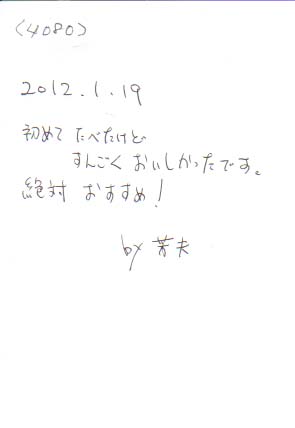 (4080)
2012.1.19
初めて たべたけど
すんごく おいしかったです。
絶対 おすすめ!
by 芳夫